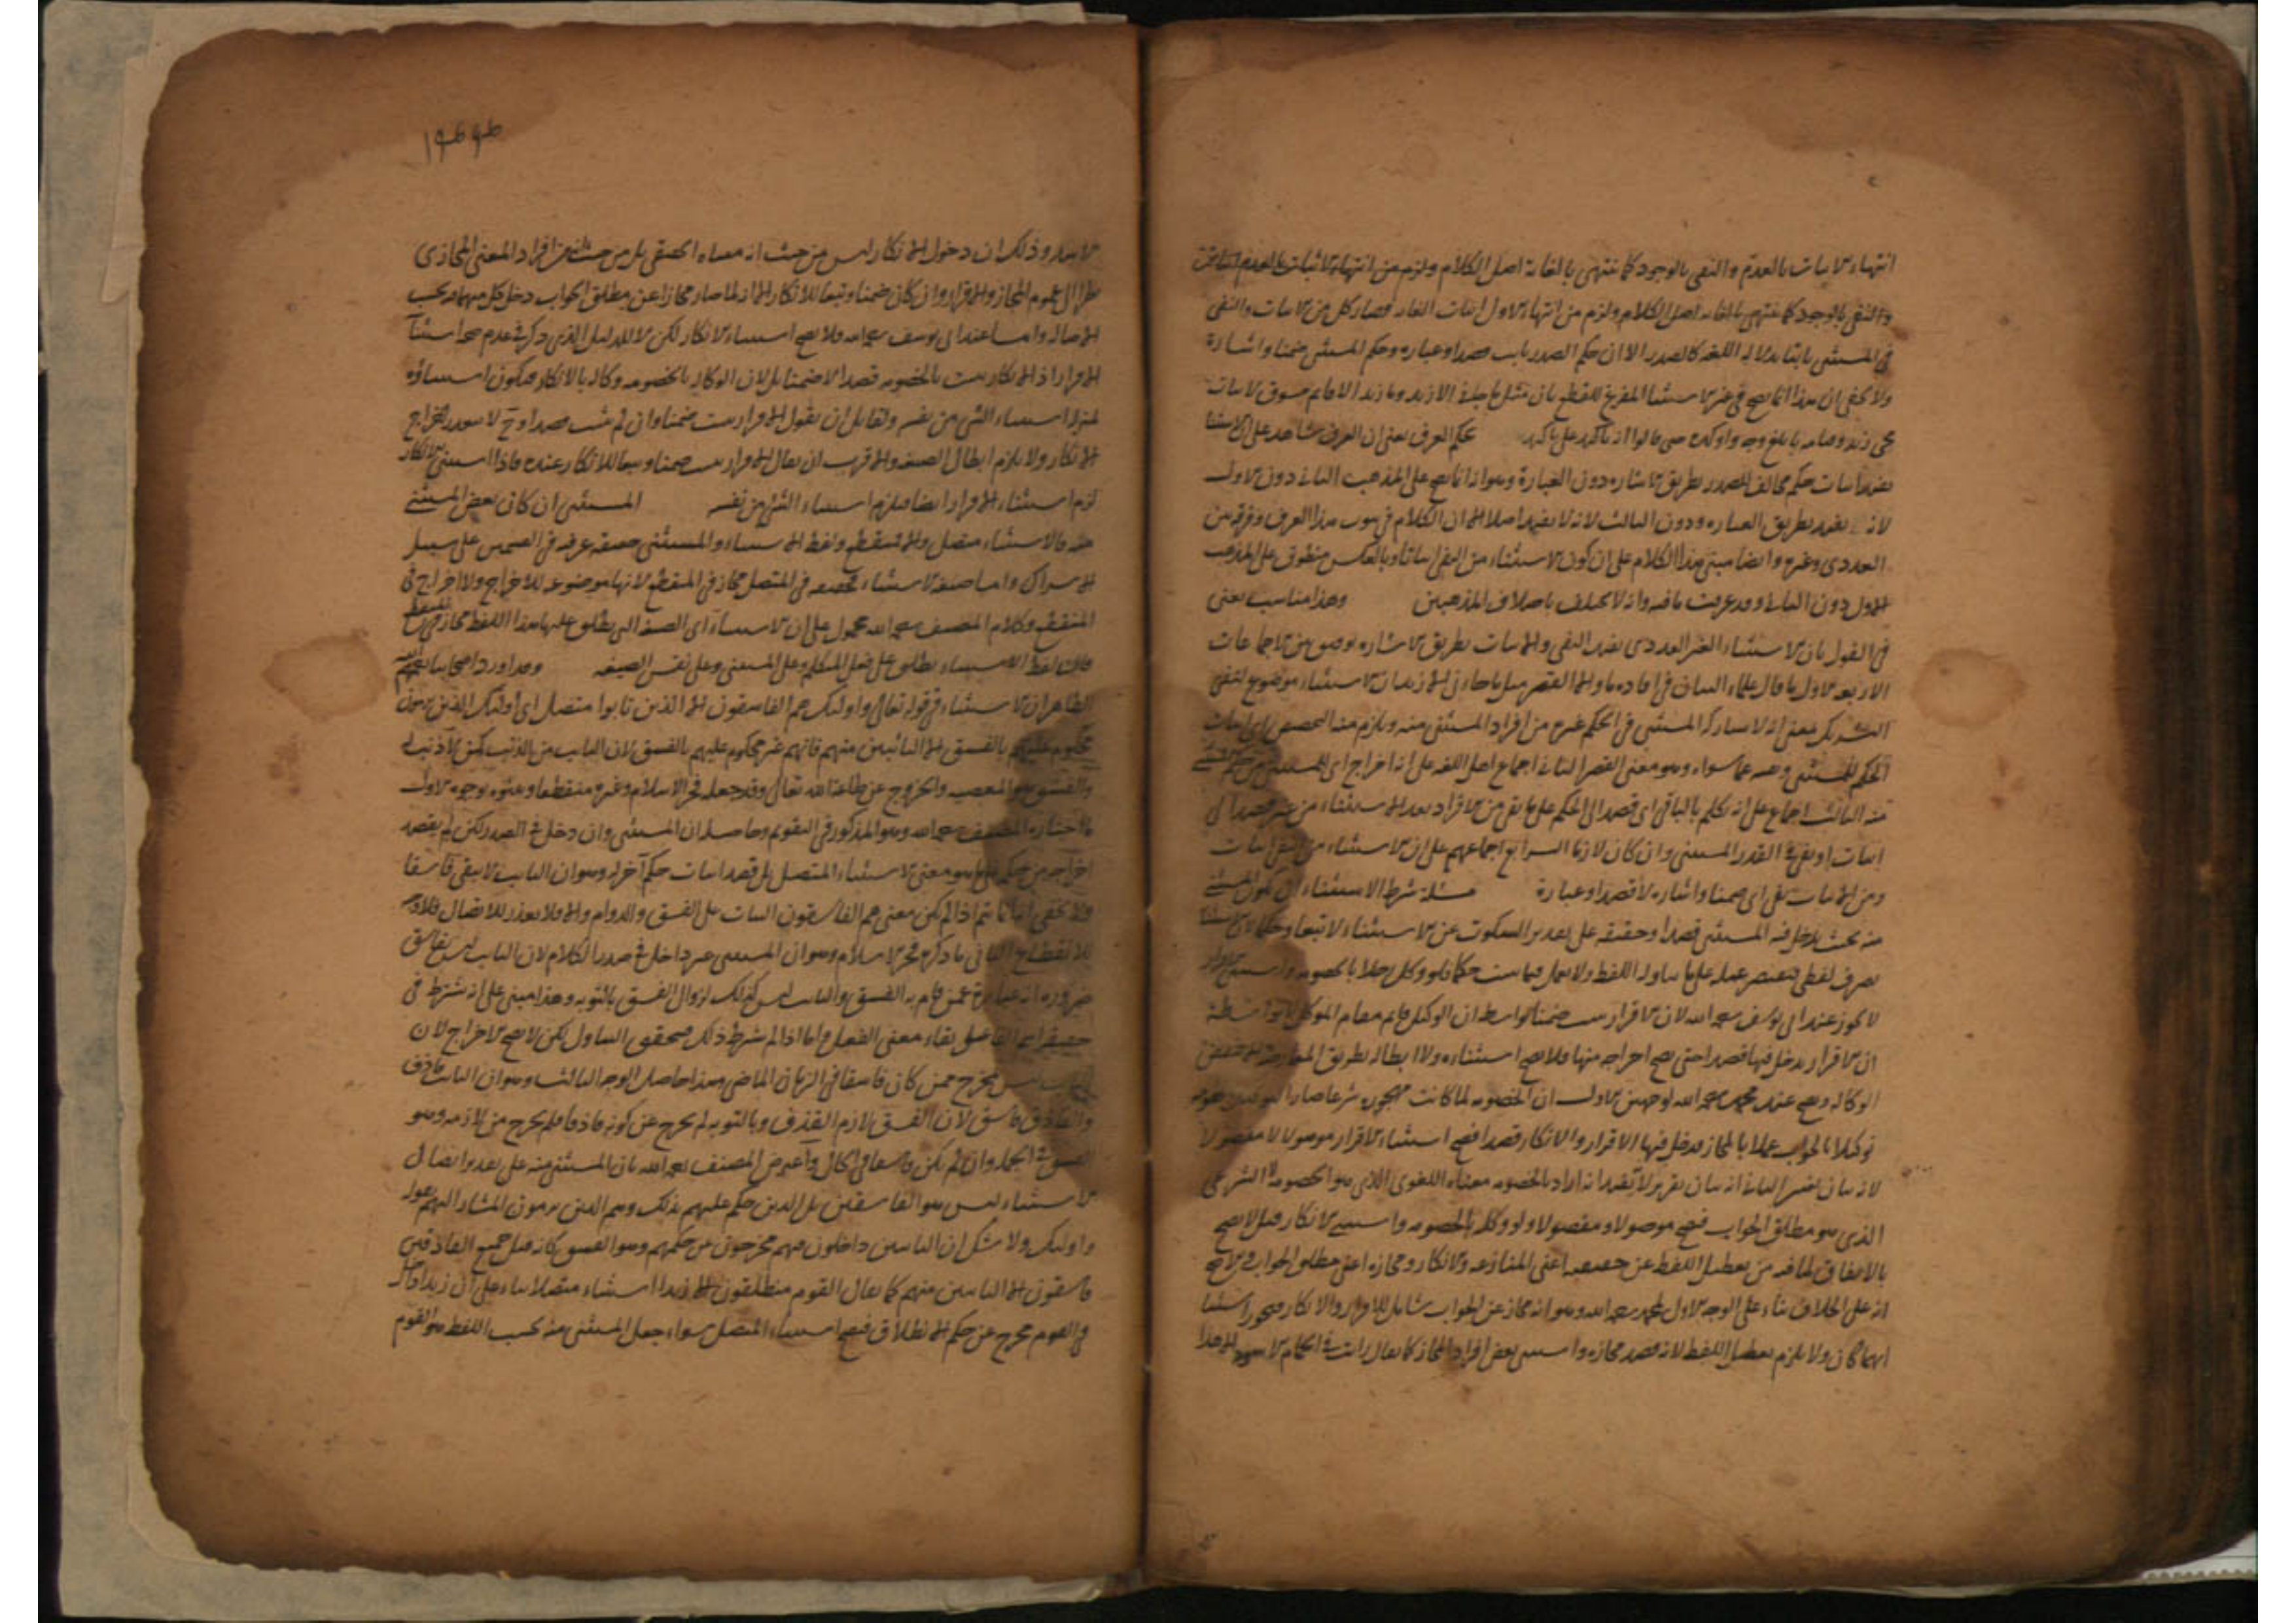 انتهاء الاثبات بالعدم والنفي بالوجود كما ينتهي بالغاية اصل الكلام ولزم من انتهاء الاثبات بالعدم
والنفي بالوجود كما ينتهي بالغاية اصل الكلام ولزم من انتهاء الاول اثبات الغاية فصار كل من الاثبات والنفي
في المستثنى ثابتا بدلالة اللغة كالصدر الا ان حكم الصدر ثابت قصدا وعبارة وحكم المستثنى ضمنا واشارة
ولا يخفى ان هذا انما يصح في غير الاستثناء المفرغ للقطع بان مثل ما جاءني الا زيد وما زيد الا قائم مسوق لاثبات
مجي زيد وقيامه بابلغ وجه واوكده حتى قالوا انه تاكيد على تاكيد بحكم العرف يعني ان العرف شاهد على ان الاستثناء
يفيد اثبات حكم مخالف للصدر بطريق الاشارة دون العبارة وهو انما يصح على المذهب الثاني دون الاول
لانه يفيد بطريق العبارة ودون الثالث لانه لا يفيد اصلا الا ان الكلام في ثبوت هذا العرف وفرقه بين
العددي وغيره وايضا مبنى هذا الكلام على ان كون الاستثناء من النفي اثباتا وبالعكس منطوق على المذهب
الاول دون الثاني وقد عرفت ما فيه وانه لا يختلف باختلاف المذهبين وهذا مناسب يعني
في القول بان الاستثناء الغير العددي يفيد النفي والاثبات بطريق الاشارة توفيق بين الاجماعات
الاربعة الاول ما قال علماء البيان في افادة ما والا القصر مثل ما جاءني الا زيد ان الاستثناء موضوع لنفي
التشريك بمعنى انه لا يشارك المستثنى في الحكم غيره من افراد المستثنى منه ويلزم منه التخصيص اي اثبات
الحكم للمستثنى ونفيه عما سواه وهو معنى القصر الثاني اجماع اهل اللغة على انه اخراج اي للمستثنى من حكم المستثنى
منه الثالث اجماع على انه تكلم بالباقي اي قصد الى الحكم على ما بقي من الافراد بعد الاستثناء من غير قصد الى
اثبات او نفي في القدر المستثنى وان كان لازما الرابع اجماعهم على ان الاستثناء من النفي اثبات
ومن الاثبات نفي اي ضمنا واشارة لا قصدا وعبارة مسئلة شرط الاستثناء ان يكون المستثنى
منه بحيث يدخل فيه المستثنى قصدا وحقيقة على تقدير السكوت عن الاستثناء لا تبعا وحكما لان الاستثناء
تصرف لفظي فيقتصر عمله على ما يتناوله اللفظ ولا يعمل فيما يثبت حكما فلو وكل رجلا بالخصومة واستثنى الاقرار
لا يجوز عند ابي يوسف رحمه الله لان الاقرار يثبت ضمنا بواسطة ان الوكيل قائم مقام الموكل لا بواسطة
ان الاقرار يدخل فيها قصدا حتى يصح اخراجه منها فلا يصح استثناؤه ولا ابطاله بطريق المعارضة الا بنقض
الوكالة ويصح عند محمد رحمه الله لوجهين الاول ان الخصومة لما كانت مهجورة شرعا صار التوكيل بالخصومة
توكيلا بالجواب عملا بالمجاز فيدخل فيها الاقرار والانكار قصدا فيصح استثناء الاقرار موصولا لا مفصولا
لانه بيان تغيير الثاني انه بيان تقرير لا تقييد انه اراد بالخصومة معناه اللغوي الذي هو الخصومة لا الشرعي
الذي هو مطلق الجواب فيصح موصولا ومفصولا ولو وكله بالخصومة واستثنى الانكار قيل لا يصح
بالاتفاق لما فيه من تعطيل اللفظ عن حقيقته اعني المنازعة والانكار ومجازه اعني مطلق الجواب والاصح
انه على الخلاف بناء على الوجه الاول لمحمد رحمه الله وهو انه مجاز عن الجواب شامل للاقرار والانكار فيجوز استثناء
ايهما كان ولا يلزم تعطيل اللفظ لانه قصد مجازه واستثنى بعض افراد المجاز كما يقال رايت في الحمام الاسود الا هذا
١٩٤٩٤
الاسد وذلك ان دخول الانكار ليس من حيث انه معناه الحقيقي بل من حيث انه من افراد المعنى المجازي
نظرا الى عموم المجاز والاقرار وان كان ضمنا وتبعا للانكار الا انه لما صار مجازا عن مطلق الجواب دخل كل منهما فيه بحسب
الاصالة واما عند ابي يوسف رحمه الله فلا يصح استثناء الانكار لكن لا للدليل الذي ذكر في عدم صحة استثناء
الاقرار اذ الانكار يثبت بالخصومة قصدا لا ضمنا بل لان الوكالة بالخصومة وكالة بالانكار فيكون استثناؤه
بمنزلة استثناء الشي من نفسه ولقائل ان يقول الاقرار يثبت ضمنا وان لم يثبت قصدا وح لا يتعذر اخراج
الانكار ولا يلزم ابطال الصيغة والاقرب ان يقال الاقرار يثبت ضمنا وتبعا للانكار عنده فاذا استثنى الانكار
لزم استثناء الاقرار ايضا فيلزم استثناء الشي من نفسه المستثنى ان كان بعض المستثنى
منه فالاستثناء متصل والا فمنقطع ولفظ الاستثناء والمستثنى حقيقة عرفية في القسمين على سبيل
الاشتراك واما صيغة الاستثناء فحقيقة في المتصل مجاز في المنقطع لانها موضوعة للاخراج ولا اخراج في
المنقطع وكلام المصنف رحمه الله محمول على ان الاستثناء اي الصيغة التي يطلق عليها هذا اللفظ مجاز في المنقطع
فان لفظ الاستثناء يطلق على فعل المتكلم وعلى المستثنى وعلى نفس الصيغة وقد اورد اصحابنا رحمهم الله
الظاهر ان الاستثناء في قوله تعالى واولئك هم الفاسقون الا الذين تابوا متصل اي اولئك الذين يرمون
محكوم عليهم بالفسق الا التائبين منهم فانهم غير محكوم عليهم بالفسق لان التائب من الذنب كمن لا ذنب له
والفسق هو المعصية والخروج عن طاعة الله تعالى وقد جعله فخر الاسلام وغيره منقطعا وبينوه بوجوه الاول
ما اختاره المصنف رحمه الله وهو المذكور في التقويم وحاصله ان المستثنى وان دخل في الصدر لكن لم يقصد
اخراجه من حكمه على ما هو معنى الاستثناء المتصل بل قصد اثبات حكم آخر له وهو ان التائب لا يبقى فاسقا
ولا يخفى انه انما يتم اذا لم يكن معنى هم الفاسقون الثبات على الفسق والدوام والا فلا تعذر للاتصال فلا وجه
للانقطاع الثاني ما ذكره فخر الاسلام وهو ان المستثنى غير داخل في صدر الكلام لان التائب ليس بفاسق
ضرورة انه عبارة عمن قام به الفسق والتائب ليس كذلك لزوال الفسق بالتوبة وهذا مبنى على انه يشترط في
حقيقة اسم الفاعل بقاء معنى الفعل واما اذا لم يشترط ذلك فيتحقق التناول لكن لا يصح الاخراج لان
التائب ليس بمخرج ممن كان فاسقا في الزمان الماضي وهذا حاصل الوجه الثالث وهو ان التائب قاذف
والقاذف فاسق لان الفسق لازم القذف وبالتوبة لم يخرج عن كونه قاذفا فلم يخرج من لازمه وهو
الفسق في الجملة وان لم يكن فاسقا في الحال واعترض المصنف رحمه الله بان المستثنى منه على تقدير اتصال
الاستثناء ليس هو الفاسقين بل الذين حكم عليهم بذلك وهم الذين يرمون المشار اليهم بقوله
واولئك ولا شك ان التائبين داخلون فيهم مخرجون عن حكمهم وهو الفسق كانه قيل جميع القاذفين
فاسقون الا التائبين منهم كما يقال القوم منطلقون الا زيدا استثناء متصلا بناء على ان زيدا داخل
في القوم مخرج عن حكم الانطلاق فيصح استثناء المتصل سواء جعل المستثنى منه بحسب اللفظ هو القوم